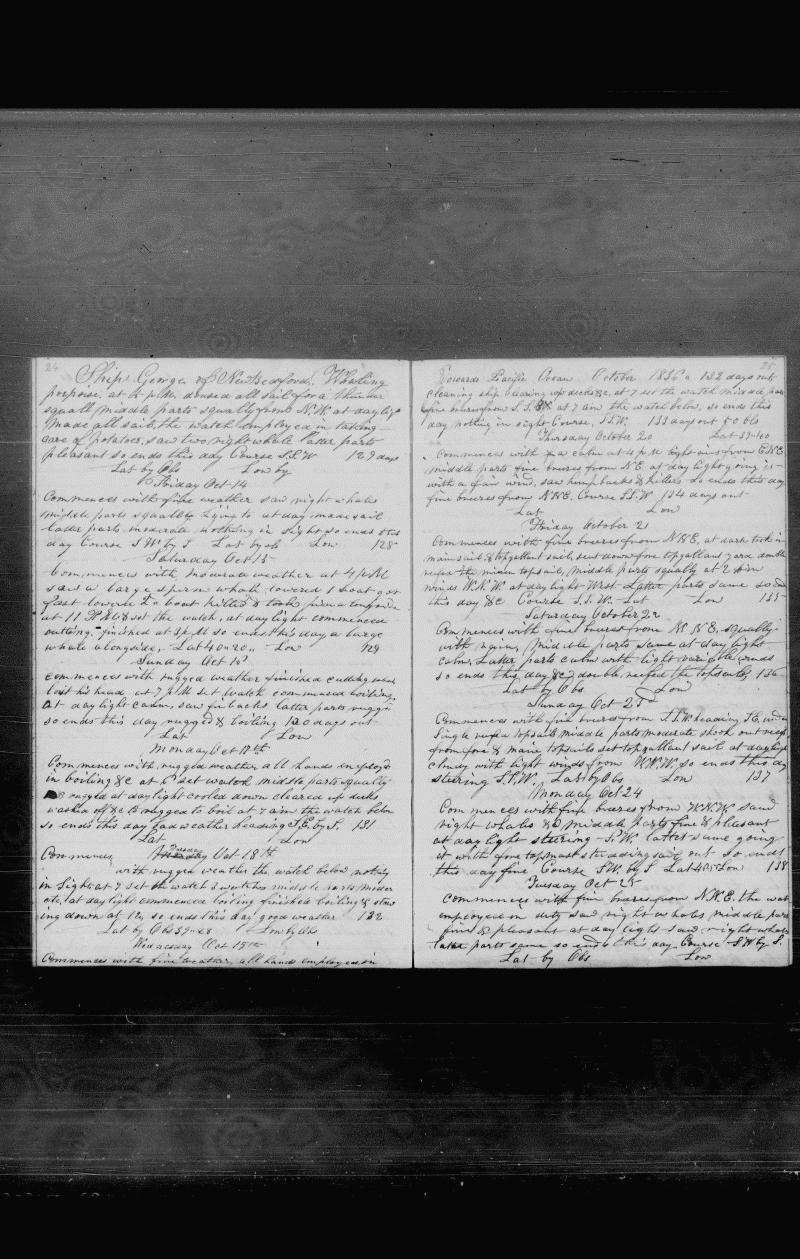 24
Ship George of New Bedford. Whaling
porpoise, at 4 p.m. doused all sail for a thunder
squall middle parts squally from N.W. at daylight
Made all sail, the watch employed in taking
care of potatoes, saw two right whale latter parts
pleasant so ends this day Course S.S.W 127 days
Lat by Obs Lon by
Friday Oct 14
Commences with fine weather saw right whales
middle parts squally lying to at day made sail
latter parts moderate nothing in sight so ends this
day Course S W by S Lat by ob Lon 128
Saturday Oct 15
Commences with moderate weather at 4 p M
saw a large sperm whale lowered 1 boat got
fast lowered boat killed & took him
at 11 P.M. set the watch, at day light commenced
cutting, finished at P.M so ends this day a large
whale alongside. Lat 40=20 Lon 129
Sunday Oct 16
commences with rugged weather finished cutting
lost his head at 7 p M set watch commenced boiling
at day light calm, saw finbacks latter parts rugged
so ends this day rugged & boiling 130 days out
Lat Lon
Monday Oct 17th
Commences with rugged weather all hands employed
in boiling &c at 6 set watch middle parts squally
& rugged at daylight cooled down cleared up decks
washed off &c rugged to boil at 7 am the watch below
so ends this day bad weather heading S.E. by S. 131
Lat Lon
Tuesday Oct 18th
Commences with rugged weather the watch below nothing
in sight, at 7 set the watch 2 watches middle parts moder
ate, at daylight commenced boiling finished boiling & stow
ing down at 12, so ends this day good weather 132
Lat by Obs 39=28 Lon by Obs
Wednesday Oct 19th
Commences with fine weather, all hands employed in
25
Towards Pacific Ocean October 1836 132 days out
cleaning ship clearing up decks &c, at 7 set the watch middle par
fine breeze from S.S.E at 7 am the watch below, so ends this
day nothing in sight Course, S.S.W. 133 days out 50 bbls
Thursday October 20 Lat 39=40
Commences with a calm at 4 p M light airs from E.N.E
middle parts fine breezes from N.E. at day light going
with a fair wind, saw humpbacks & killers so ends this day
fine breezes from N.N.E. Course S.S.W 134 days out
Lat Lon
Friday October 21
Commences with fine breezes from N.N.E, at dark took in
mainsail & topgallant sail, sent down fore topgallant yard double
reefed the main topsail, middle parts squally at 2
winds W.N.W. at day light West. Latter parts same so ends
this day &c Course S.S.W. Lat Lon 135
Saturday October 22
Commences with fine breezes from N.N.E, squally
with rain, middle parts same at day light
calm, Latter parts calm with light variable winds
so ends this day &c double, reefed the topsails 136
Lat by Obs Lon
Sunday Oct 23
Commences with fine breezes from S.S.W heading S.E. under
single reefed topsails middle parts moderate shook out reefs
from fore & main topsails set topgallant sail at daylight
cloudy with light winds from W.N.W. so ends this day
steering S.S.W. Lat by Obs Lon 137
Monday Oct 24
Commences with fine breezes from W.N.W. saw
right whales &c middle parts fine & pleasant
at day light steering S.W. latter same going
it with fore topmast studdingsail out so ends
this day fine Course S.W. by S Lat Lon 138
Tuesday Oct 25
Commences with fine breezes from N.N.E. the wat
employed on duty saw right whales middle part
fine & pleasant at day light saw right whale
latter parts same so ends this day Course S W by S.
Lat by Obs Lon